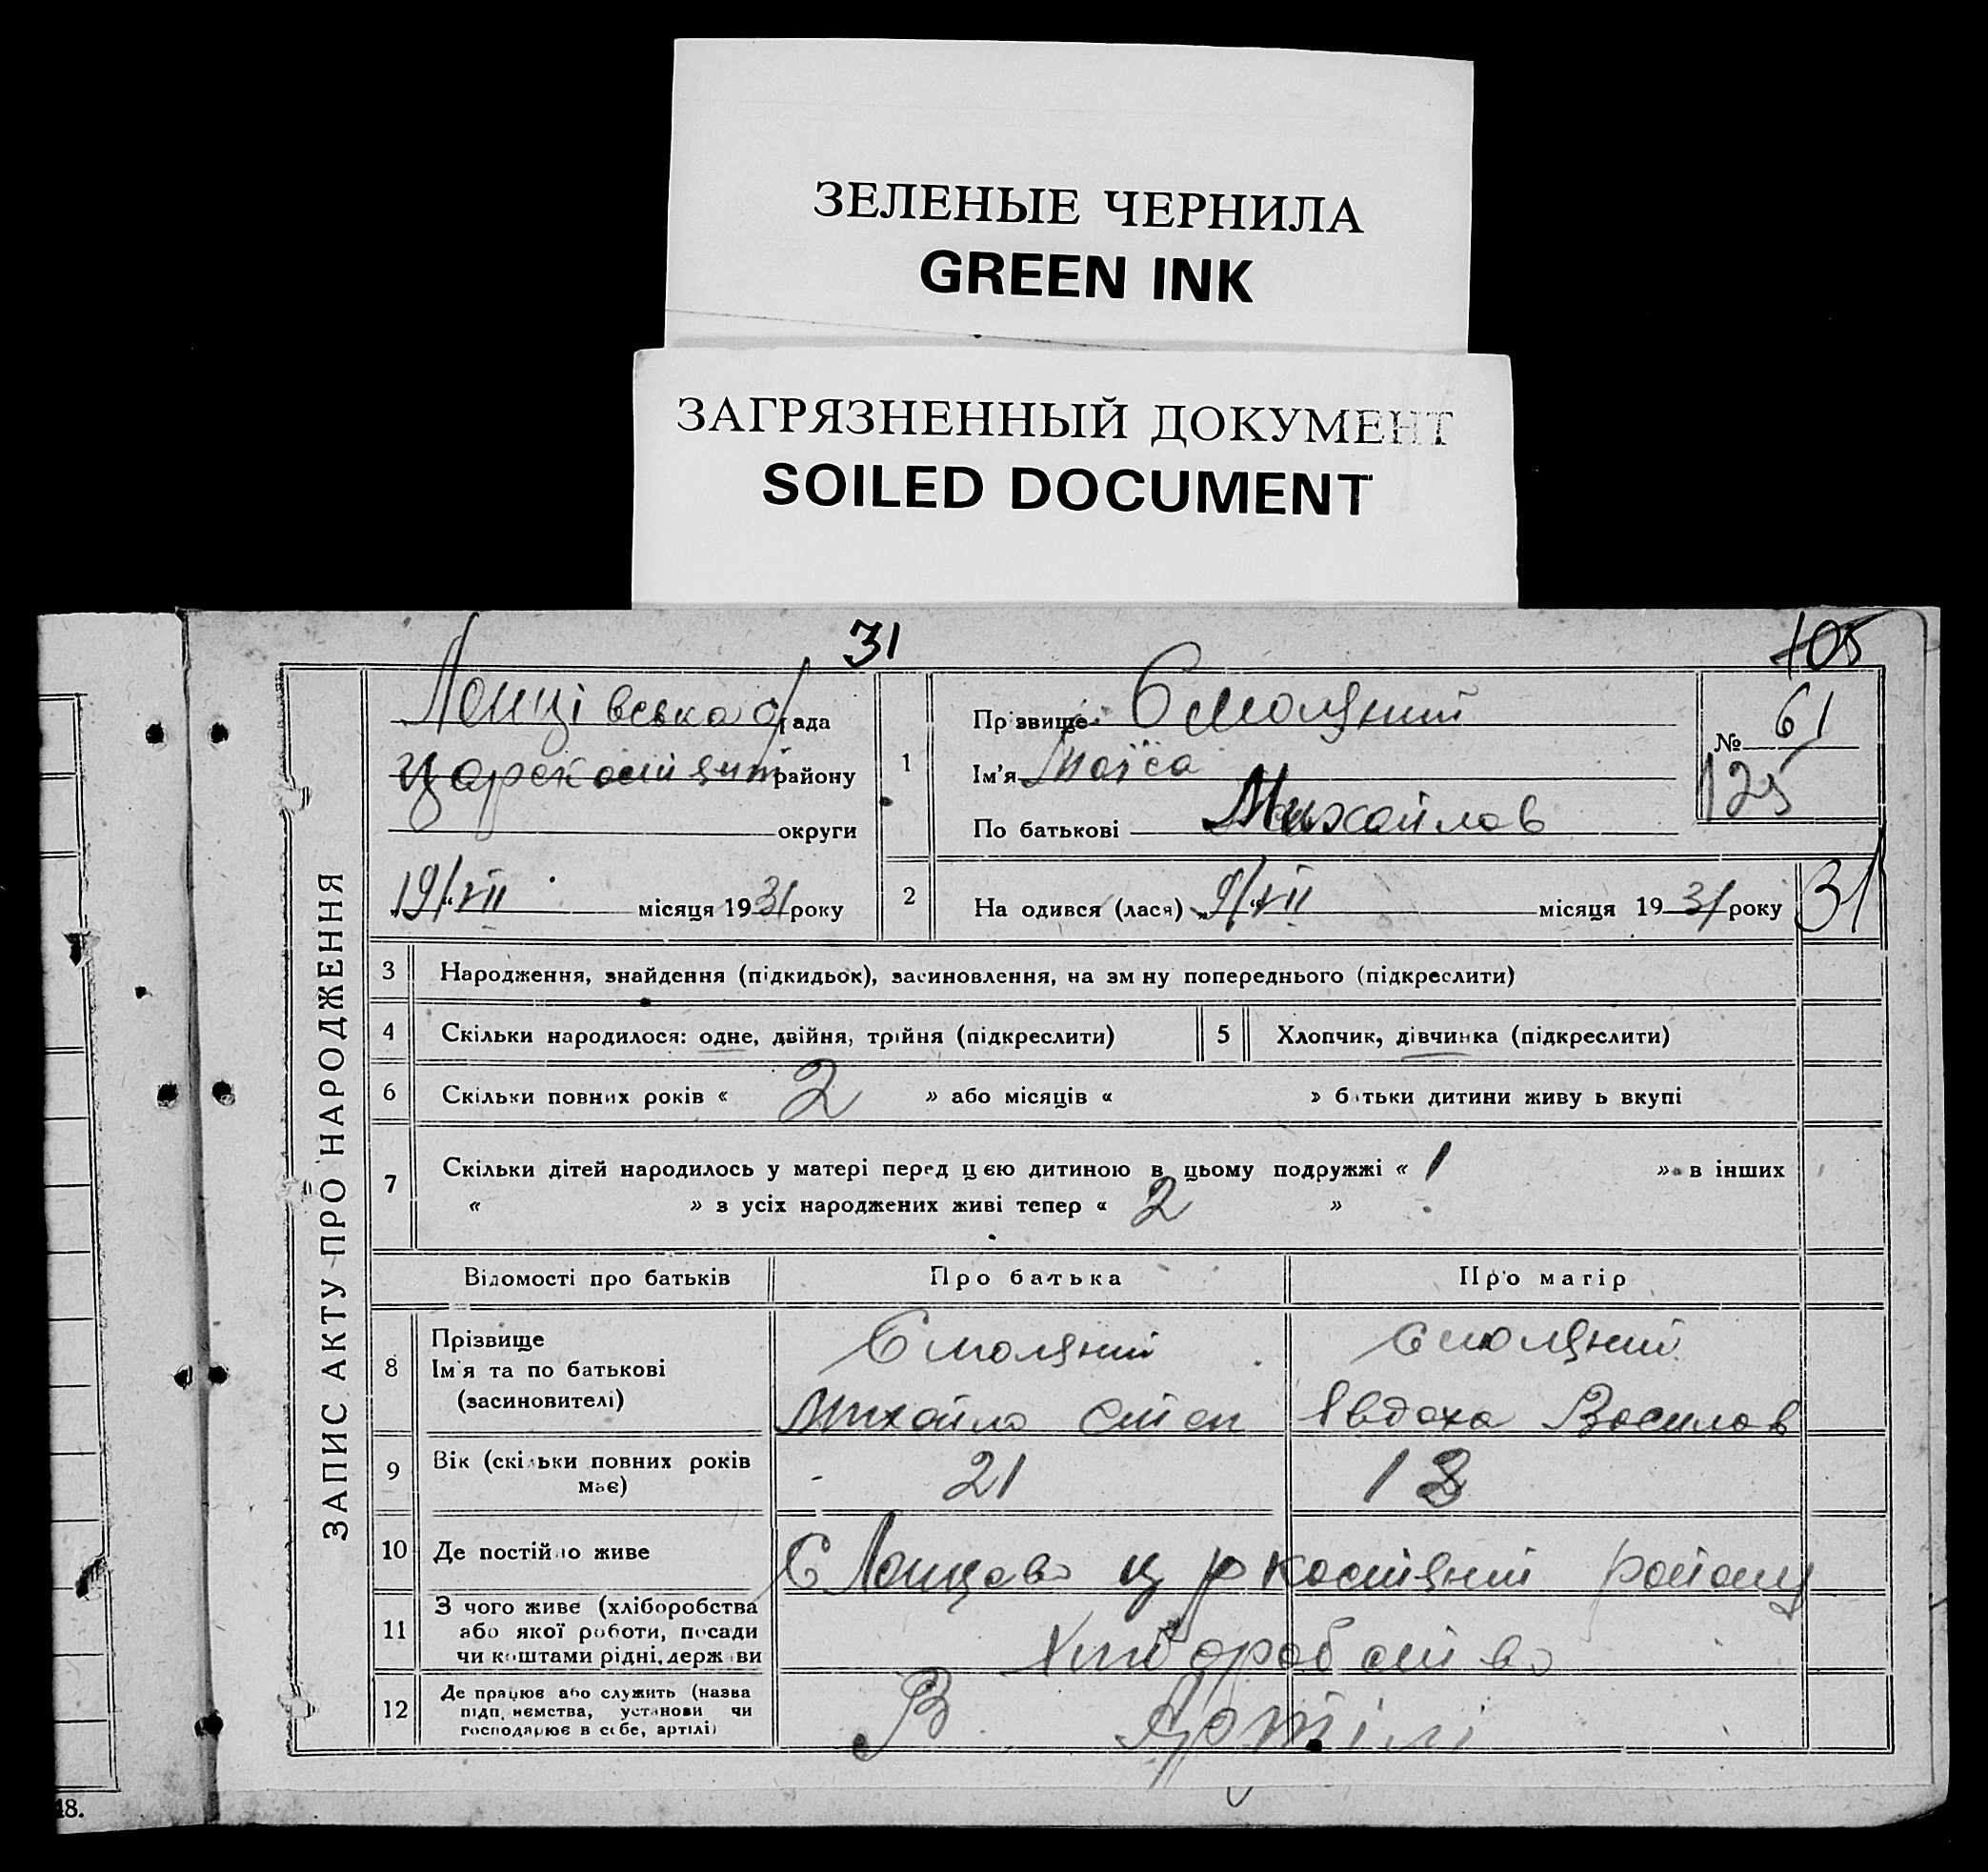 ЗЕЛЕНЫЕ ЧЕРНИЛА
GREEN INK
ЗАГРЯЗНЕННЫЙ ДОКУМЕНТ
SOILED DOCUMENT
31
105
ЗАПИС АКТУ ПРО НАРОДЖЕННЯ
рада
району
округи
19/VII місяця 1931 року
1
Прізвище Смоляний
Ім'я
По батькові Михайлов
№ 61
125
2
На одився (лася) „9/VII місяця 1931 року
31
3 Народження, знайдення (підкидьок), засиновлення, на зм ну попереднього (підкреслити)
4 Скільки народилося: одне, двійня, трійня (підкреслити)
5 Хлопчик, дівчинка (підкреслити)
6 Скільки повних років « 2 » або місяців « » батьки дитини живу ь вкупі
7 Скільки дітей народилось у матері перед цією дитиною в цьому подружжі « 1 » в інших
« » з усіх народжених живі тепер « 2 »
Відомості про батьків Про батька Про матір
8 Прізвище
Ім'я та по батькові
(засиновителі)
Смоляний
Михайло Степ
Смоляний
Явдоха Василов
9 Вік (скільки повних років
має)
21
18
10 Де постійно живе
району
11 З чого живе (хліборобства
або якої роботи, посади
чи коштами рідні, держави
Хліборобство
12 Де працює або служить (назва
підп иємства, установи чи
господарює в себе, артілі)
В Артілі
48.